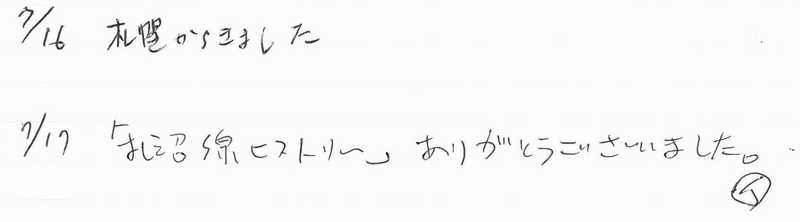 7/16 札幌からきました
7/17 「札沼線ヒストリー」ありがとうございました。